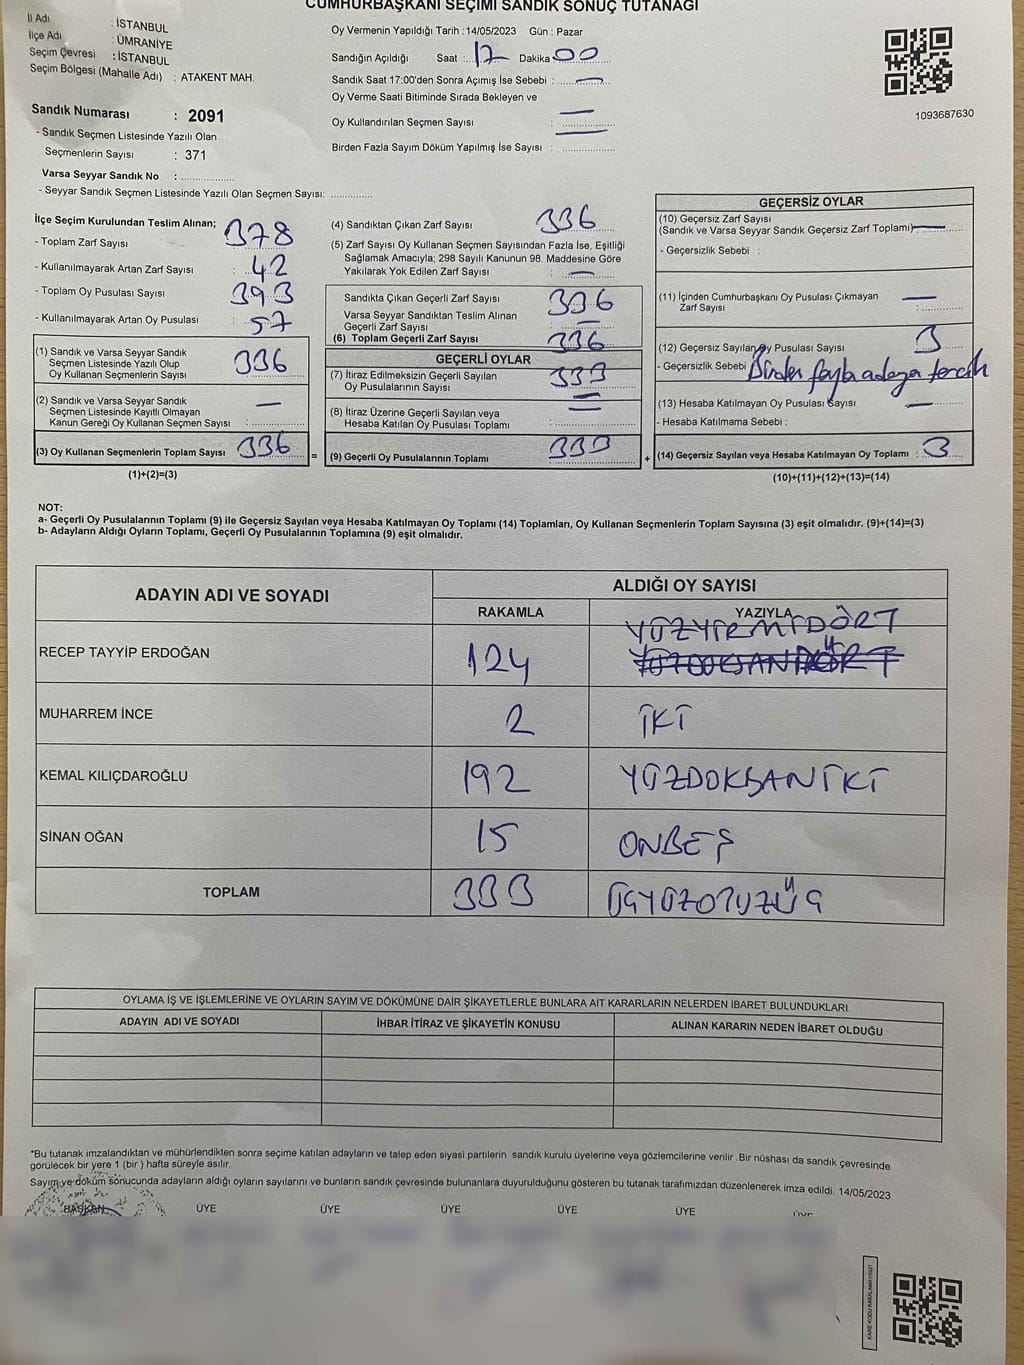 CUMHURBAŞKANI SEÇİMİ SANDIK SONUÇ TUTANAĞI
İl Adı : İSTANBUL
İlçe Adı : ÜMRANİYE
Seçim Çevresi : İSTANBUL
Seçim Bölgesi (Mahalle Adı) : ATAKENT MAH.
Oy Vermenin Yapıldığı Tarih : 14/05/2023 Gün : Pazar
Sandığın Açıldığı Saat : 17 Dakika 00
Sandık Saat 17:00'den Sonra Açımış İse Sebebi : —
Oy Verme Saati Bitiminde Sırada Bekleyen ve
Oy Kullandırılan Seçmen Sayısı : —
Birden Fazla Sayım Döküm Yapılmış İse Sayısı : —
1093687630
Sandık Numarası : 2091
- Sandık Seçmen Listesinde Yazılı Olan
Seçmenlerin Sayısı : 371
Varsa Seyyar Sandık No :
- Seyyar Sandık Seçmen Listesinde Yazılı Olan Seçmen Sayısı:
İlçe Seçim Kurulundan Teslim Alınan;
- Toplam Zarf Sayısı : 378
- Kullanılmayarak Artan Zarf Sayısı : 42
- Toplam Oy Pusulası Sayısı : 393
- Kullanılmayarak Artan Oy Pusulası : 57
(1) Sandık ve Varsa Seyyar Sandık
Seçmen Listesinde Yazılı Olup
Oy Kullanan Seçmenlerin Sayısı : 336
(2) Sandık ve Varsa Seyyar Sandık
Seçmen Listesinde Kayıtlı Olmayan
Kanun Gereği Oy Kullanan Seçmen Sayısı : —
(3) Oy Kullanan Seçmenlerin Toplam Sayısı : 336
(1)+(2)=(3)
(4) Sandıktan Çıkan Zarf Sayısı : 336
(5) Zarf Sayısı Oy Kullanan Seçmen Sayısından Fazla İse, Eşitliği
Sağlamak Amacıyla; 298 Sayılı Kanunun 98. Maddesine Göre
Yakılarak Yok Edilen Zarf Sayısı : —
Sandıkta Çıkan Geçerli Zarf Sayısı : 336
Varsa Seyyar Sandıktan Teslim Alınan
Geçerli Zarf Sayısı : —
(6) Toplam Geçerli Zarf Sayısı : 336
GEÇERLİ OYLAR
(7) İtiraz Edilmeksizin Geçerli Sayılan
Oy Pusulalarının Sayısı : 333
(8) İtiraz Üzerine Geçerli Sayılan veya
Hesaba Katılan Oy Pusulası Toplamı : —
= (9) Geçerli Oy Pusulalarının Toplamı : 333
GEÇERSİZ OYLAR
(10) Geçersiz Zarf Sayısı
(Sandık ve Varsa Seyyar Sandık Geçersiz Zarf Toplamı) —
- Geçersizlik Sebebi :
(11) İçinden Cumhurbaşkanı Oy Pusulası Çıkmayan
Zarf Sayısı : —
(12) Geçersiz Sayılan Oy Pusulası Sayısı : 3
- Geçersizlik Sebebi Birden fazla adaya tercih
(13) Hesaba Katılmayan Oy Pusulası Sayısı : —
- Hesaba Katılmama Sebebi :
+ (14) Geçersiz Sayılan veya Hesaba Katılmayan Oy Toplamı : 3
(10)+(11)+(12)+(13)=(14)
NOT:
a- Geçerli Oy Pusulalarının Toplamı (9) ile Geçersiz Sayılan veya Hesaba Katılmayan Oy Toplamı (14) Toplamları, Oy Kullanan Seçmenlerin Toplam Sayısına (3) eşit olmalıdır. (9)+(14)=(3)
b- Adayların Aldığı Oyların Toplamı, Geçerli Oy Pusulalarının Toplamına (9) eşit olmalıdır.
ADAYIN ADI VE SOYADI
ALDIĞI OY SAYISI
RAKAMLA YAZIYLA
YÜZYİRMİDÖRT
RECEP TAYYİP ERDOĞAN 124 YÜZDOKSANDÖRT
MUHARREM İNCE 2 İKİ
KEMAL KILIÇDAROĞLU 192 YÜZDOKSANİKİ
SİNAN OĞAN 15 ONBEŞ
TOPLAM 333 ÜÇYÜZOTUZÜÇ
OYLAMA İŞ VE İŞLEMLERİNE VE OYLARIN SAYIM VE DÖKÜMÜNE DAİR ŞİKAYETLERLE BUNLARA AİT KARARLARIN NELERDEN İBARET BULUNDUKLARI
ADAYIN ADI VE SOYADI İHBAR İTİRAZ VE ŞİKAYETİN KONUSU ALINAN KARARIN NEDEN İBARET OLDUĞU
*Bu tutanak imzalandıktan ve mühürlendikten sonra seçime katılan adayların ve talep eden siyasi partilerin sandık kurulu üyelerine veya gözlemcilerine verilir .Bir nüshası da sandık çevresinde
görülecek bir yere 1 (bir ) hafta süreyle asılır.
Sayım ve döküm sonucunda adayların aldığı oyların sayılarını ve bunların sandık çevresinde bulunanlara duyurulduğunu gösteren bu tutanak tarafımızdan düzenlenerek imza edildi. 14/05/2023
BAŞKAN ÜYE ÜYE ÜYE ÜYE ÜYE ÜYE
KARE KODU KARALAMAYINIZ!